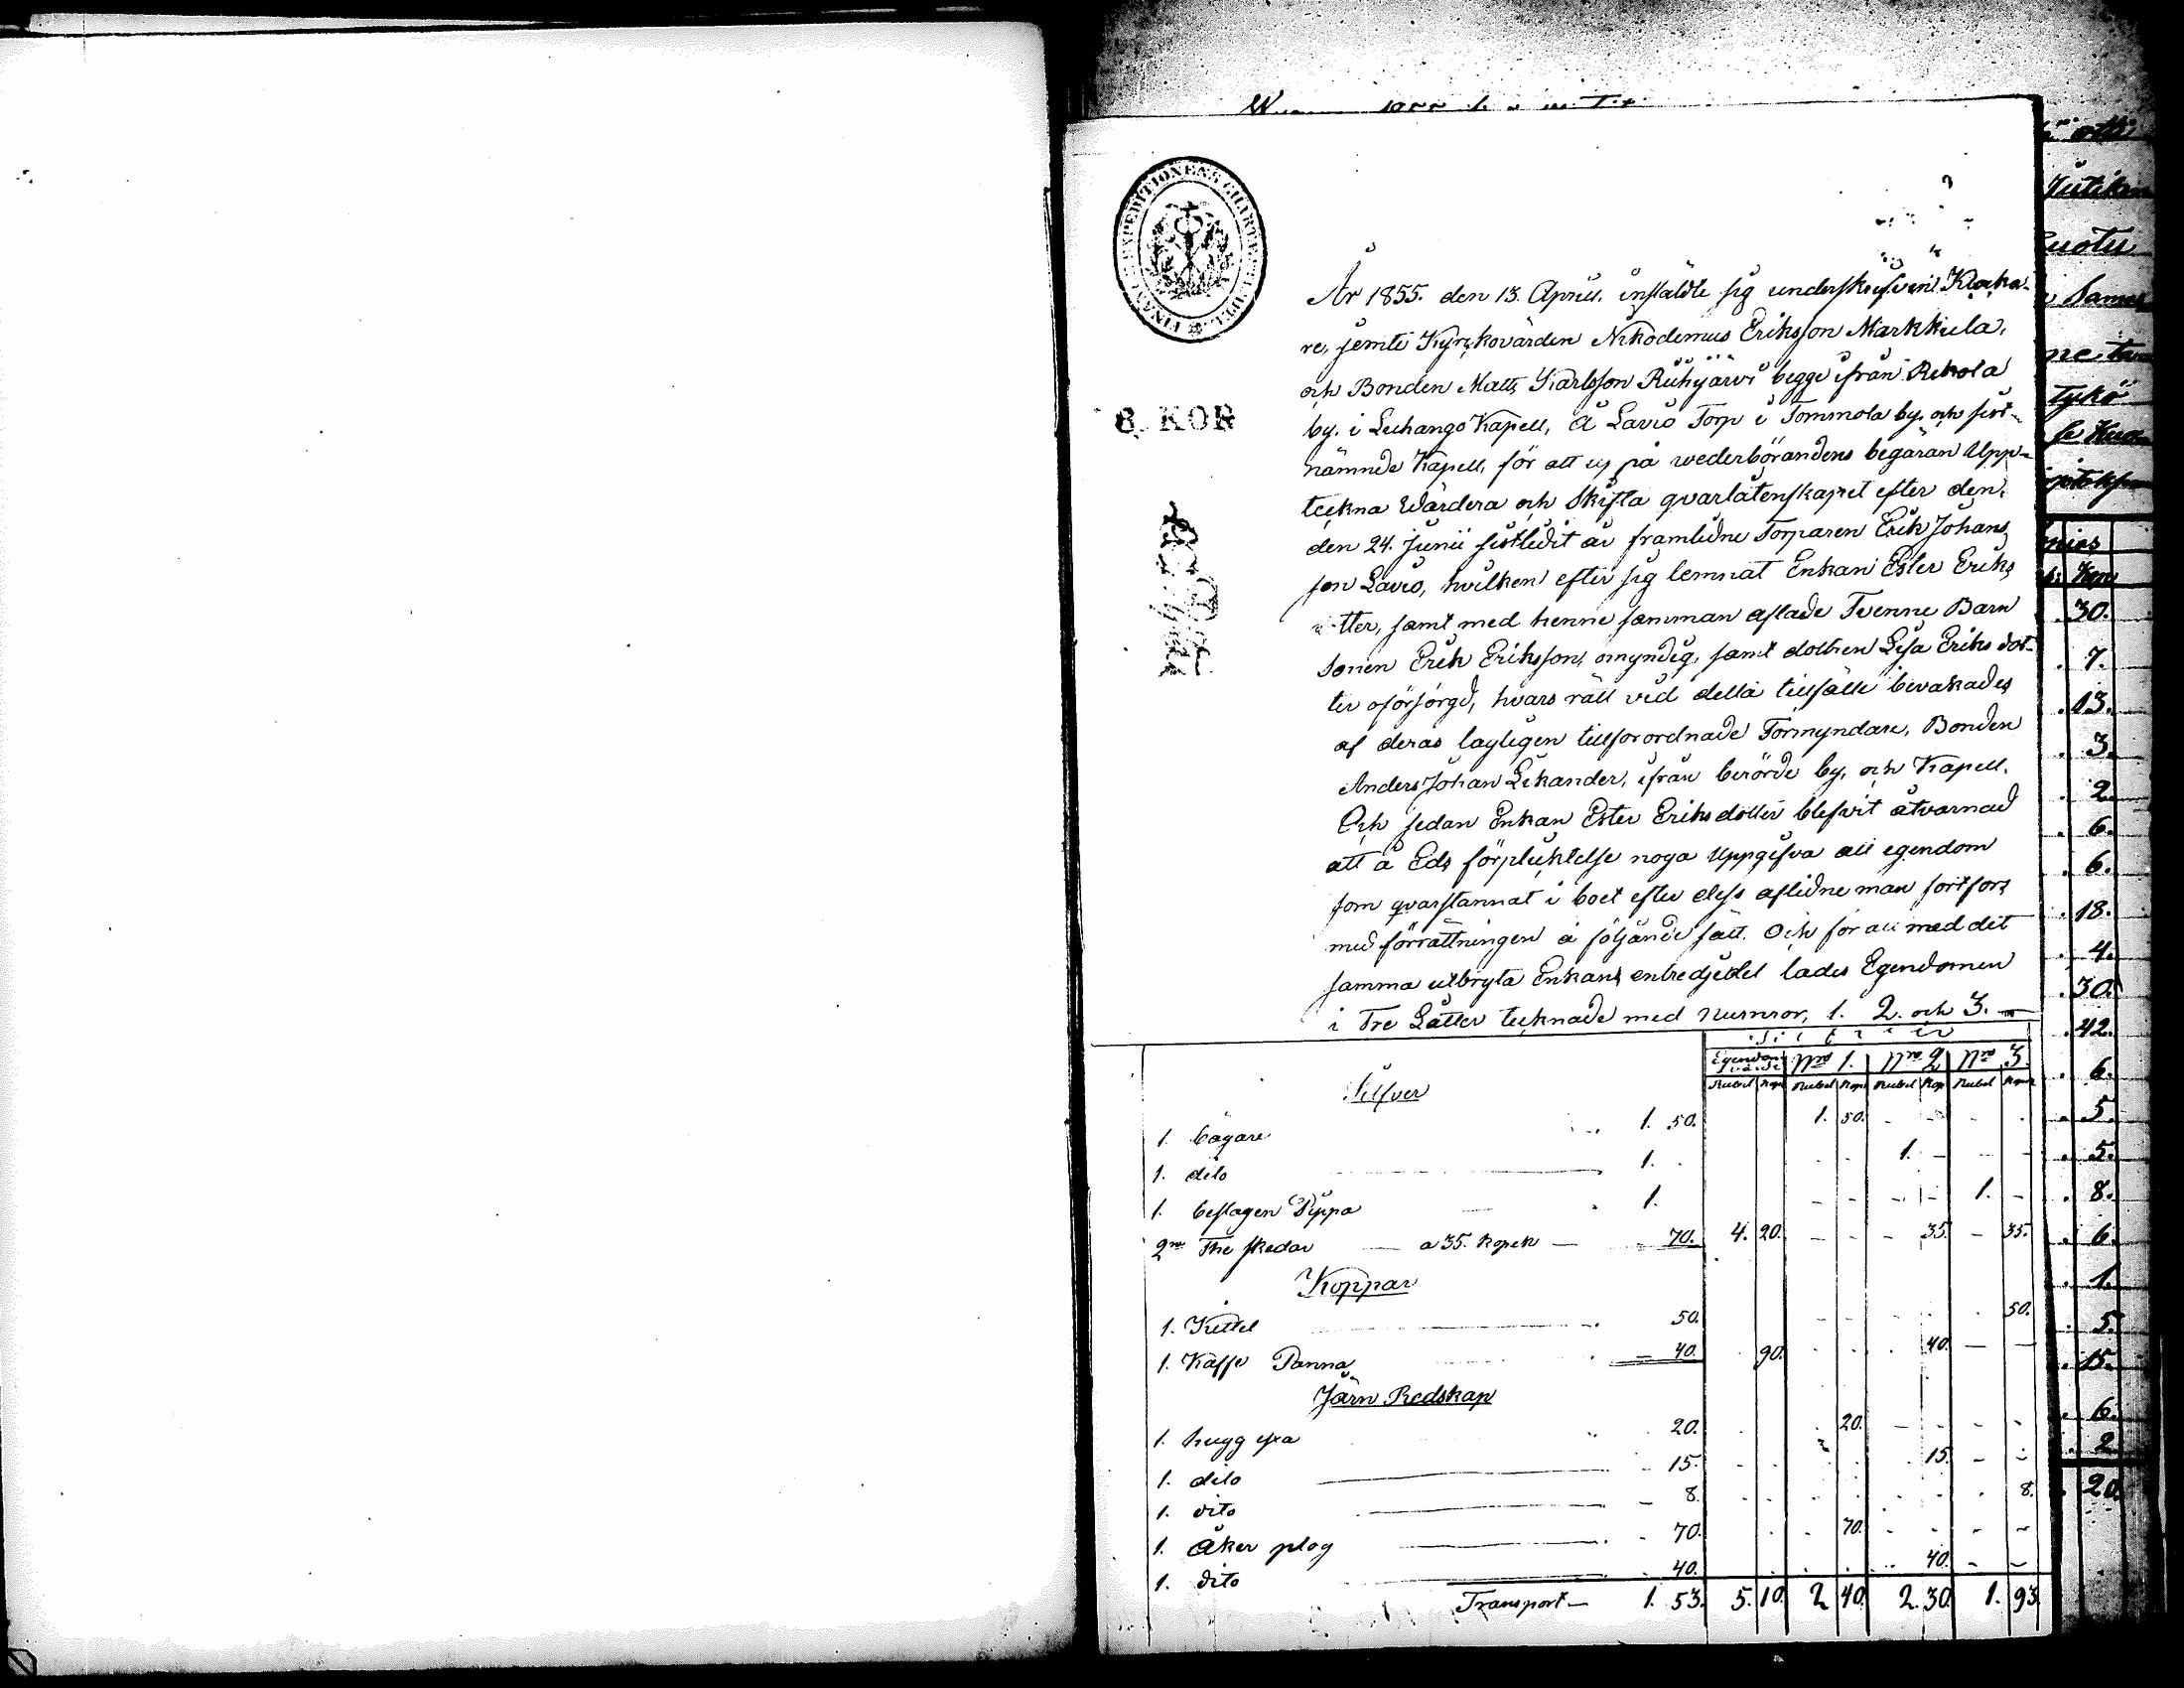 FINANCE EXPEDITIONENS CHARTÆ
6. KOP.
År 1855. den 13. April. instäldte sig underskrifven Klocka-
re, jemte Kyrkovärden Nikodemus Eriksson Markkula,
och Bonden Matts Karlsson Ruhijärvi begge ifrån Rekola
by. i Luhango Kapell, Å Lavio Torp i Tommola by. och sist-
nämnde Kapell, för att på wederbörandens begäran Upp-
teckna Wärdera och Skifta qvarlåtenskapet efter den,
den 24. Junii sistledit år framledne Torparen Erik Johans
son Lavio, hvilken efter sig lemnat Enkan Ester Eriks
tter, samt med henne samman aflade Tvenne Barn
Sonen Erik Eriksson, omyndig, samt dottren Lisa Eriks dot-
ter oförsörgd, hvars rätt vid detta tillfälle bevakades
af deras lagligen tillforordnade Förmyndare, Bonden
Anders Johan Lekander, ifrån berörde by, och Kapell.
Och sedan Enkan Ester Eriksdotter blefvit åtvarnad
att å Eds förpliktelse noga Uppgifva all egendom
som qvarstannat i boet efter dess aflidne man fortfors
med förrättningen å följande sätt. Och för att med det
samma utbryta Enkans entredjedel lades Egendomen
i Tre Lotter tecknade med numror, 1. 2. och 3.
Egendom Nro 1. Nro 2 Nro 3.
Silfver Rubel Kop Rubel Kop Rubel Kop Rubel Kop
1. bägare 1. 50. 1. 50.
1. dito 1. 1.
1. beslagen Pippa 1. 1.
2ne The skedar a 35. kopek 70. 4. 20. 35. 35.
Koppar
1. Kittel 50. 50.
1. Kaffe Panna 40. 90. 40.
Järn Redskap
1. hugg yxa 20. 20.
1. dito 15. 15.
1. dito 8. 8.
1. Åker plog 70. 70.
1. dito 40. 40.
Transport 1. 53. 5. 10. 2 40. 2. 30. 1. 93.
30.
7.
13.
3.
2.
6.
6.
18.
4.
30.
42.
6.
5.
5.
8.
6.
1.
5.
15.
6.
2.
20.